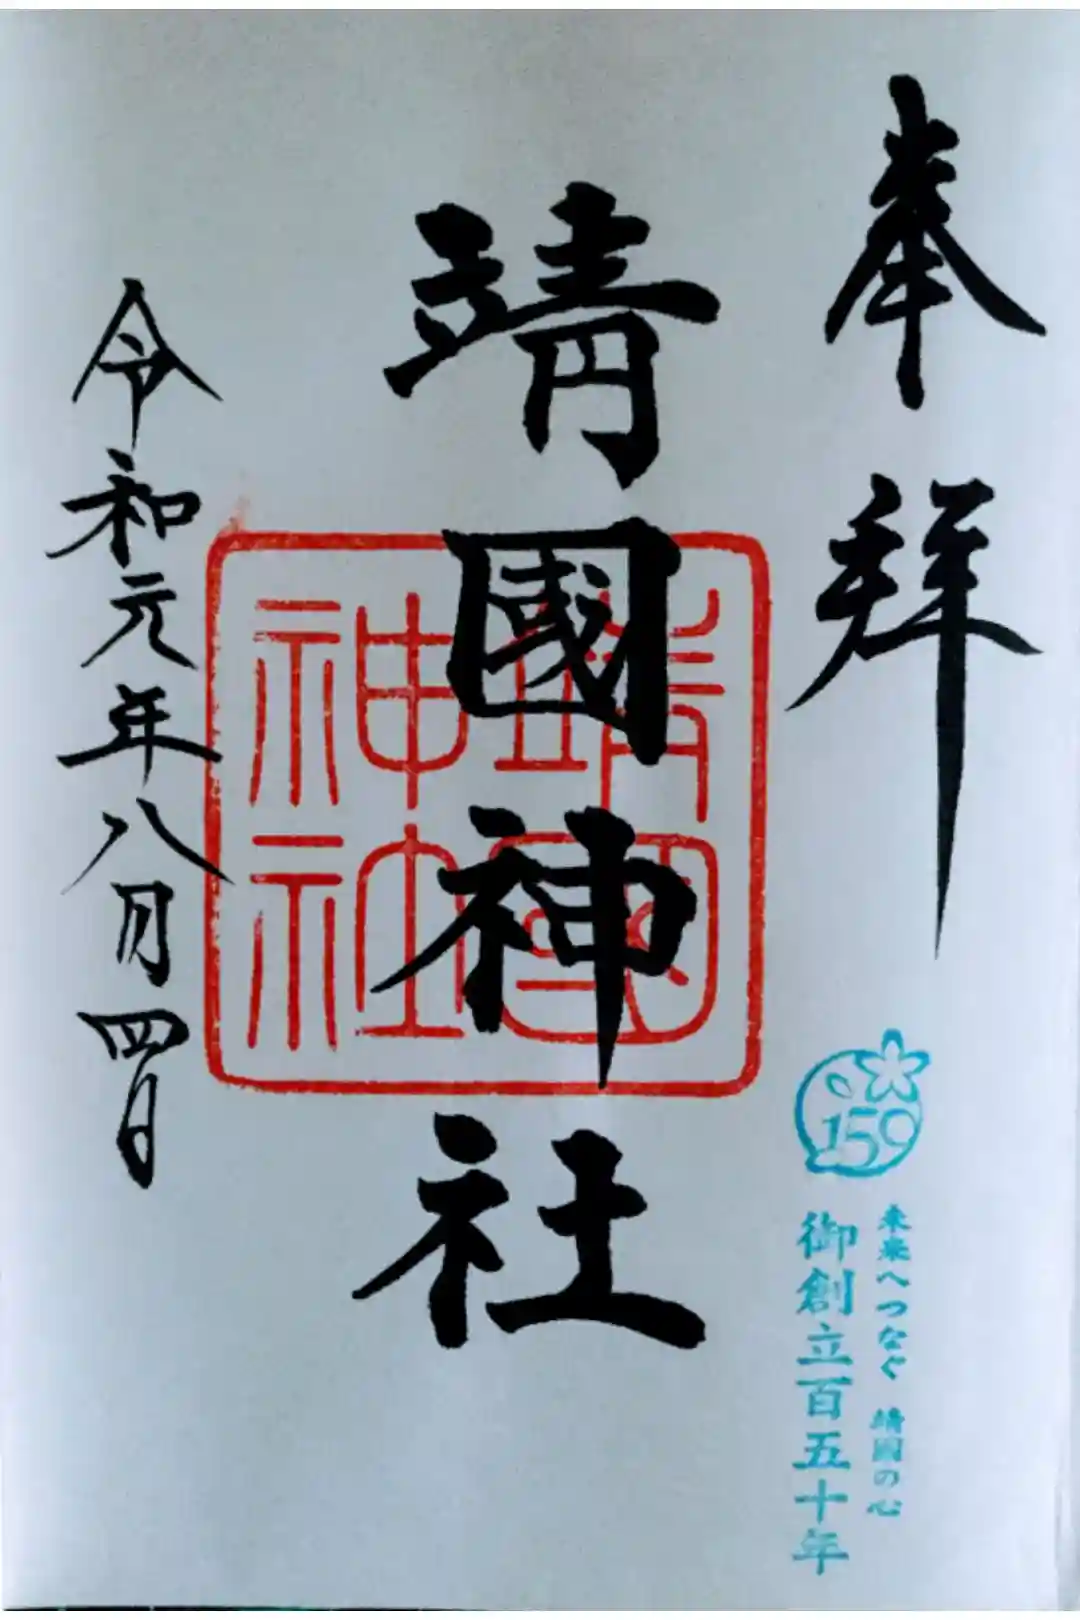 奉拝
150
未来へつなぐ 靖國の心
御創立百五十年
靖國神社
靖國
神社
令和元年八月四日